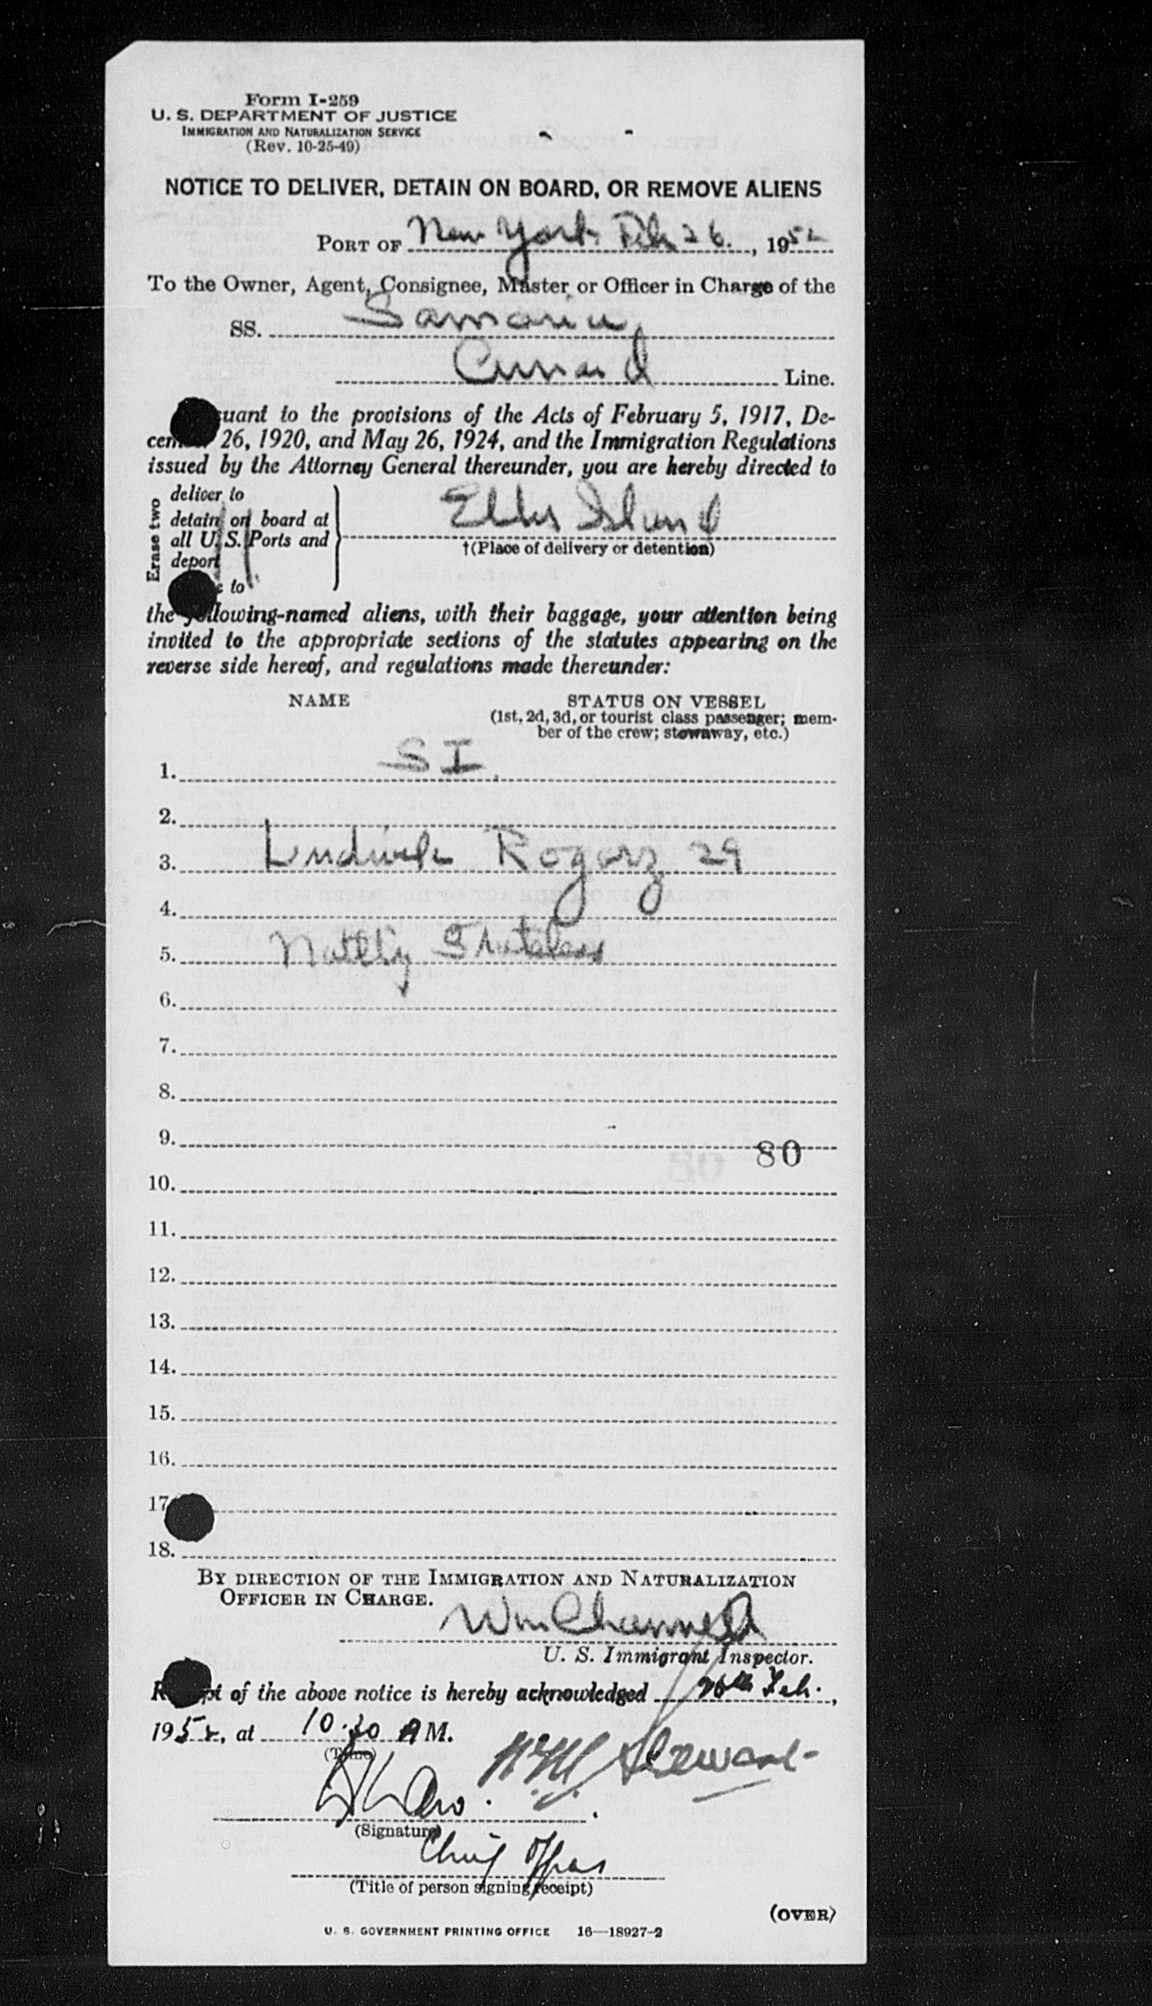 Form I-259
U. S. DEPARTMENT OF JUSTICE
IMMIGRATION AND NATURALIZATION SERVICE
(Rev. 10-25-49)
NOTICE TO DELIVER, DETAIN ON BOARD, OR REMOVE ALIENS
PORT OF New York Feb 26., 1952
To the Owner, Agent, Consignee, Master or Officer in Charge of the
SS. Samaria
Cunard Line.
uant to the provisions of the Acts of February 5, 1917, De-
cem 26, 1920, and May 26, 1924, and the Immigration Regulations
issued by the Attorney General thereunder, you are hereby directed to
Erase two
deliver to
detain on board at
all U. S. Ports and
deport
e to
Ellis Island
†(Place of delivery or detention)
the following-named aliens, with their baggage, your attention being
invited to the appropriate sections of the statutes appearing on the
reverse side hereof, and regulations made thereunder:
NAME STATUS ON VESSEL
(1st, 2d, 3d, or tourist class passenger; mem-
ber of the crew; stowaway, etc.)
1. S I
2.
3. Ludwik Rogorz 29
4.
5. Natlty Stateless
6.
7.
8.
9.
80
10.
11.
12.
13.
14.
15.
16.
17
18.
BY DIRECTION OF THE IMMIGRATION AND NATURALIZATION
OFFICER IN CHARGE.
Wm Channell
U. S. Immigrant Inspector.
R pt of the above notice is hereby acknowledged 26th Feb.,
1952, at 10.30 A M.
(Time)
Stewart
(Signature)
Chief Offcr
(Title of person signing receipt)
(OVER)
U. S. GOVERNMENT PRINTING OFFICE 16—18927-2